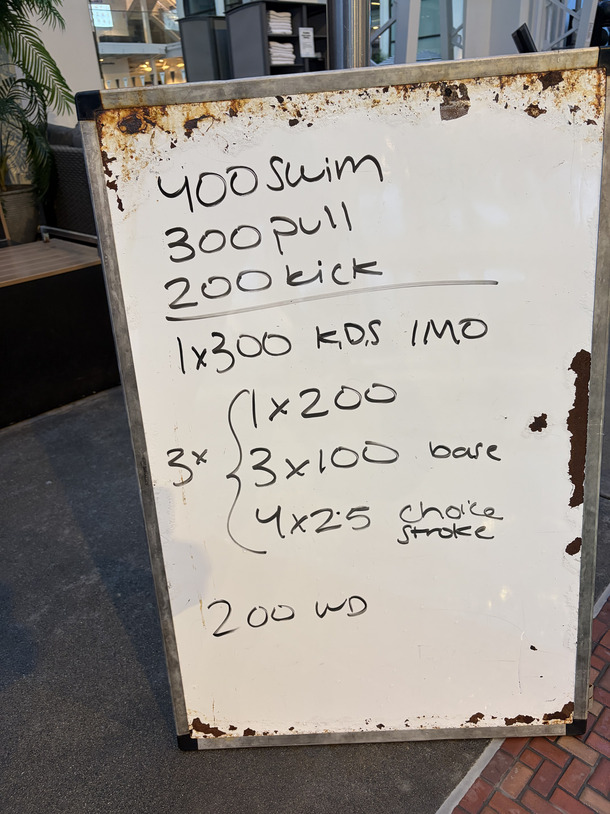 400 Swim
300 pull
200 kick
1x300 K,D,S IMO
1x200
3x
3x100 base
4x25 choice
stroke
200 WD